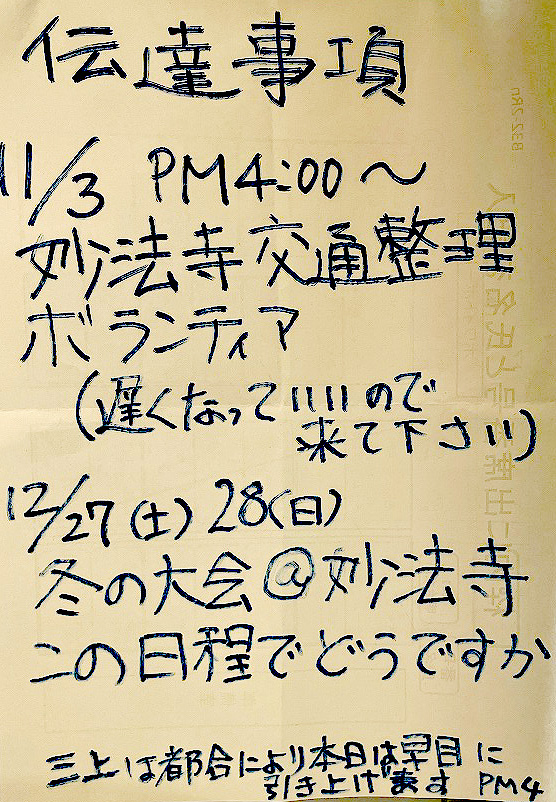 伝達事項
11/3 PM4:00〜
妙法寺交通整理
ボランティア
(遅くなっていいので
来て下さい)
12/27(土) 28(日)
冬の大会@妙法寺
この日程でどうですか
三上は都合により本日は早目に
引き上げます PM4